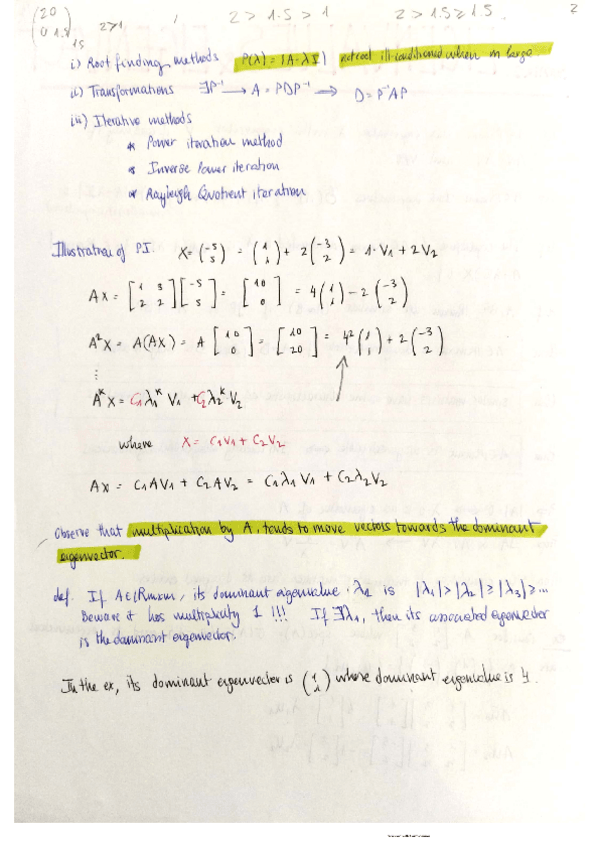 (2 0
0 1.5) 2>1 2 > 1.5 > 1 2 > 1.5 ≥ 1.5 2
1.5
i) Root finding methods P(λ) = |A-λI| ill conditioned when m large.
ii) Transformations ∃P⁻¹ → A = PDP⁻¹ → D = P⁻¹AP
iii) Iterative methods
* Power iteration method
* Inverse Power iteration
* Rayleigh Quotient iteration
Illustration of PI. X = (-5 5) = (1 1) + 2(-3 2) = 1·V₁ + 2V₂
AX = [1 3 2 2][-5 5] = [10 0] = 4(1 1) - 2(-3 2)
A²X = A(AX) = A[10 0] = [10 20] = 4²(1 1) + 2(-3 2)
⋮
AᵏX = C₁λ₁ᵏ V₁ + C₂λ₂ᵏ V₂
where X = C₁V₁ + C₂V₂
AX = C₁AV₁ + C₂AV₂ = C₁λ₁V₁ + C₂λ₂V₂
Observe that multiplication by A, tends to move vectors towards the dominant
eigenvector.
def. If A∈ℝmxm, its dominant eigenvalue λ₁ is |λ₁| > |λ₂| ≥ |λ₃| ≥ ...
Beware it has multiplicity 1 !!! If ∃λ₁, then its associated eigenvector
is the dominant eigenvector.
In the ex, its dominant eigenvector is (1 1) where dominant eigenvalue is 4.